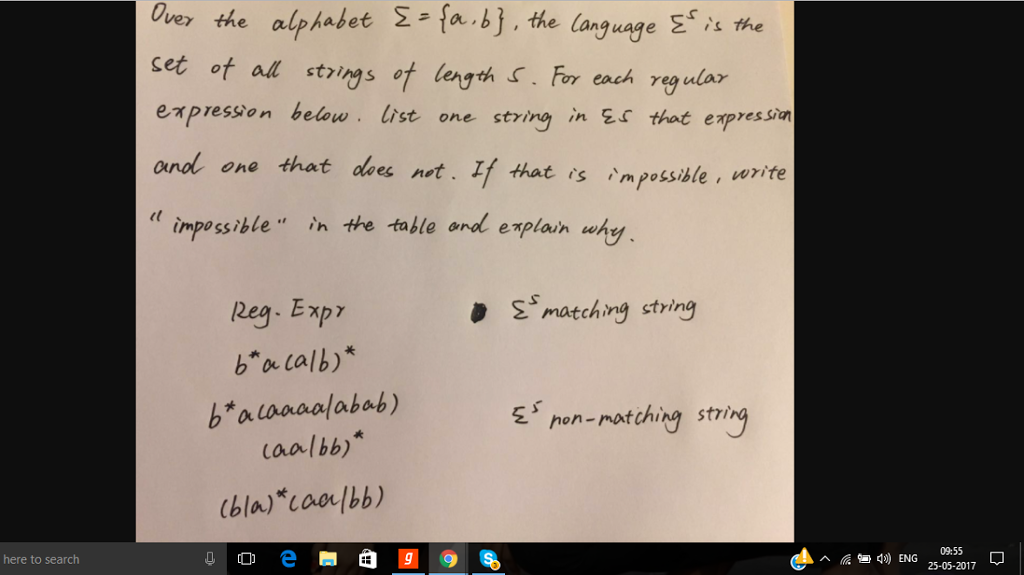 Over the alphabet Σ = {a,b}, the language Σ⁵ is the
set of all strings of length 5. For each regular
expression below. list one string in Σ5 that expression
and one that does not. If that is impossible, write
"impossible" in the table and explain why.
Reg. Expr
Σ⁵ matching string
b*a(a|b)*
b*a(aaaa|abab)
Σ⁵ non-matching string
(aa|bb)*
(b|a)*(aa|bb)
here to search
ENG
09:55
25-05-2017